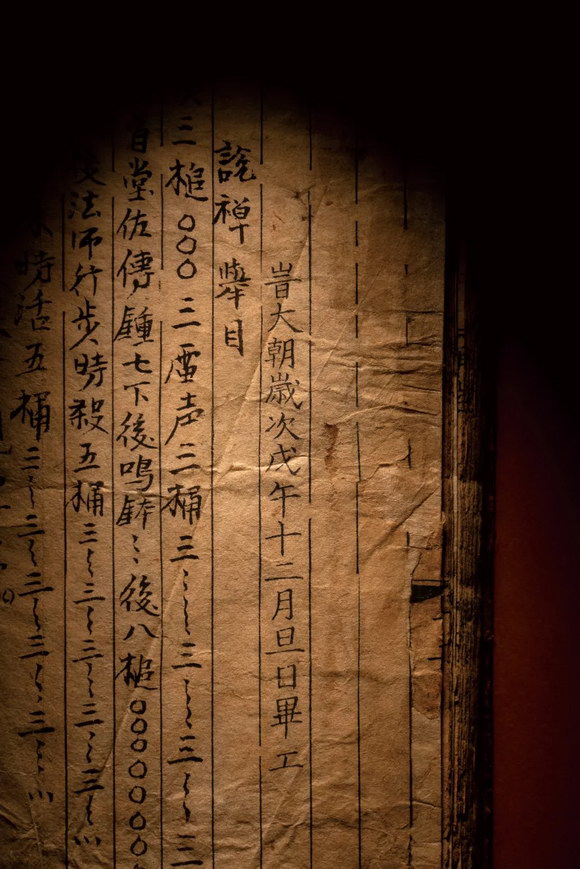 旹大朝嵗次戊午十二月旦日畢工
說禅舉目
三槌〇〇〇三声三桶三三三三
首堂佐傳鍾七下後鳴鉢後八槌〇〇〇〇〇〇〇
法师行步時殺五桶三三三三三
時活五桶三三三三三